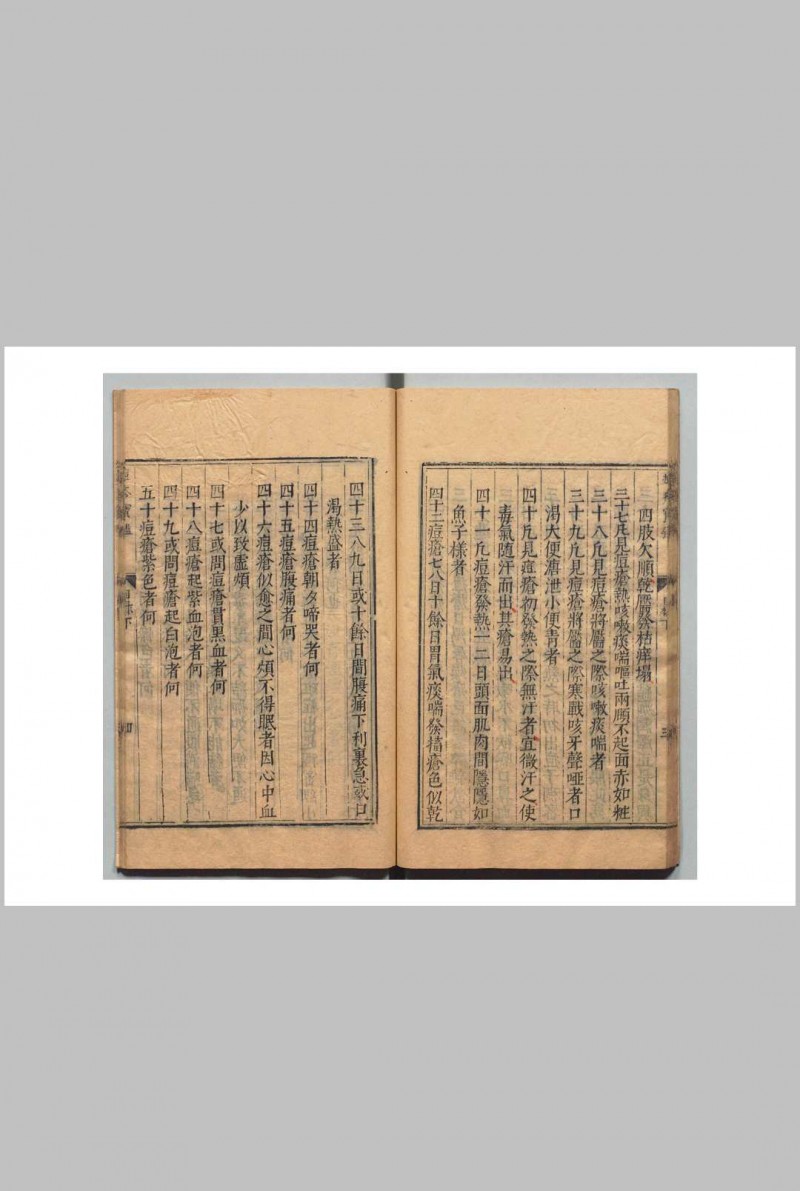 四肢欠順乾靨發枯痒塌
三十七凡見痘瘡熱咳嗽痰喘嘔吐兩頤不起面赤如粧
三十八凡見痘瘡將靨之際咳嗽痰喘者
三十九凡見痘瘡將靨之際寒戰咳牙聲啞者口
渴大便溏泄小便青者
四十凡見痘瘡初發熱之際無汗者宜微汗之使
毒氣随汗而出其瘡易出
四十一凡痘瘡發熱一二日頭面肌肉間隱隱如
魚子樣者
四十二痘瘡七八日十餘日胃氣痰喘發搐瘡色似乾
三
四十三八九日或十餘日間腹痛下利裏急或口
渴熱盛者
四十四痘瘡朝夕啼哭者何
四十五痘瘡腹痛者何
四十六痘瘡似愈之間心煩不得眠者因心中血
少以致虛煩
四十七或問痘瘡貫黑血者何
四十八痘瘡起紫血泡者何
四十九或問痘瘡起白泡者何
五十痘瘡紫色者何
下
四